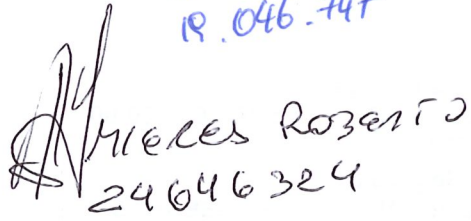 19.046.747
Mieres Roberto
24646324